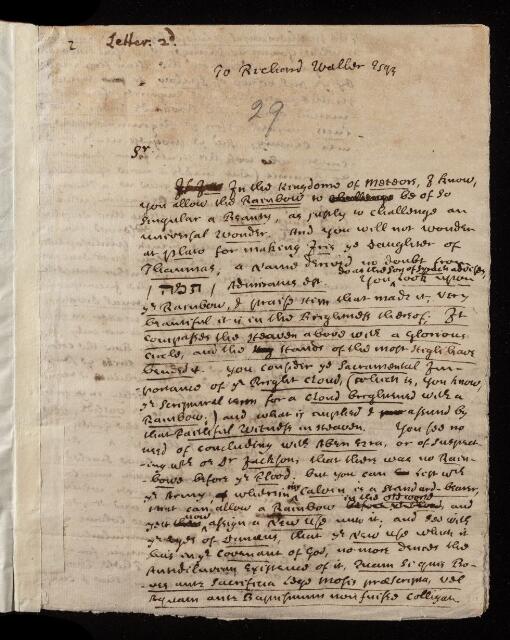 2
Letter: 2d.
To Richard Waller Esqr
29
Sr
In the Kingdome of Meteors, I know,
you allow the Rainbow to challenge be of so
singular a Beauty, as justly to challenge an
universal Wonder. And you will not wonder
at Plato for making Iris ye Daughter of
Thaumas, a Name deriv'd no doubt from
| תמה | Admiratus est. do as the Son of Sirach advises, You look upon
ye Rainbow, & praise Him that made it; very
beautiful it is in the Brightness thereof; It
compasses the Heaven above with a glorious
circle, and the Hands of the most High have
bended it. You consider ye Sacramental Im-
portance of ye Bright Cloud, (which is, you know,
ye Scriptural term for a Cloud brightned with a
Rainbow;) and what is implied & assured by
that Faithful Witness in Heaven. You see no
need of concluding with Aben Ezra, or of suspect-
ing with or Dr Jackson, that there was no Rain-
bowe before ye Flood; but you can with
ye Army, wherein Calvin is a Standard-bearer,
that can allow a Rainbow in the old world before and
yett now assign a New Use unto it; and see with
ye Eyes of that ye New Use which it
has in ye Covenant of God, no more denies the
Antediluvian Existence of it, Quam si quis Bo-
ves ante Sacrificia Lege Mosis præscripta, vel
Aquam ante Baptismum non fuisse colligat.